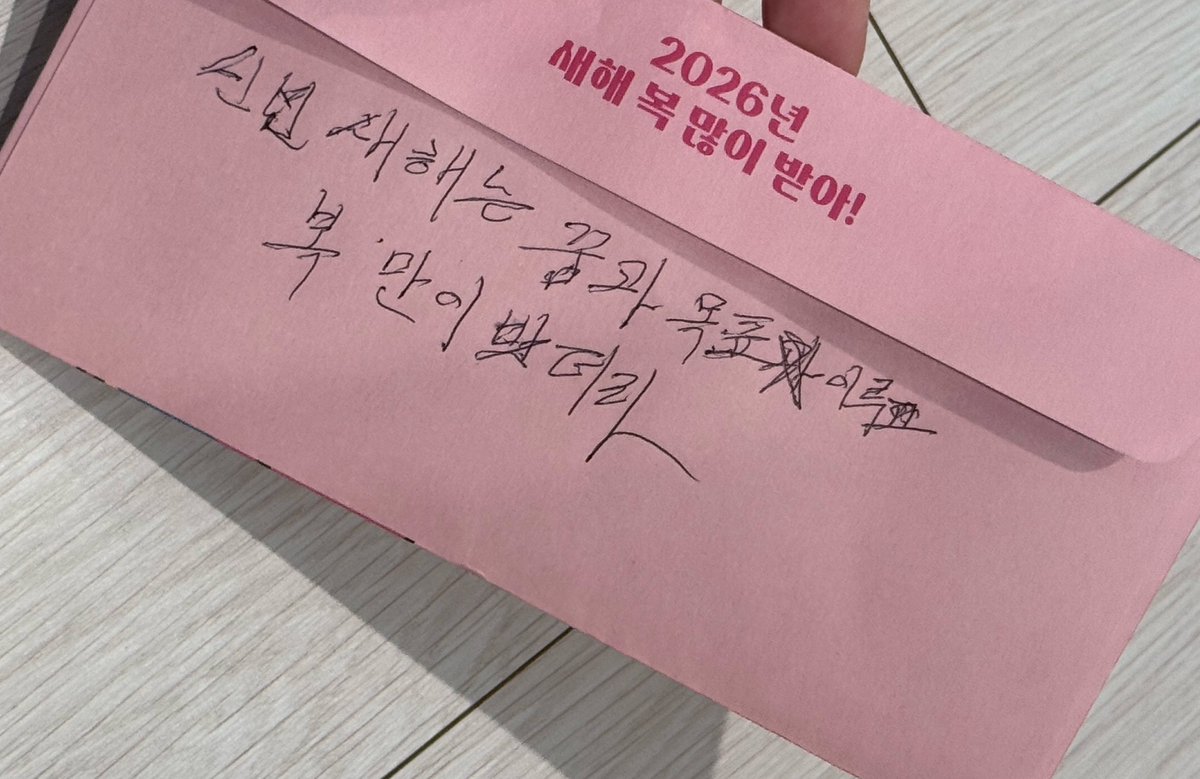 2026년
새해 복 많이 받아!
새해는 꿈과 목표 이룩
복 만이 받더라